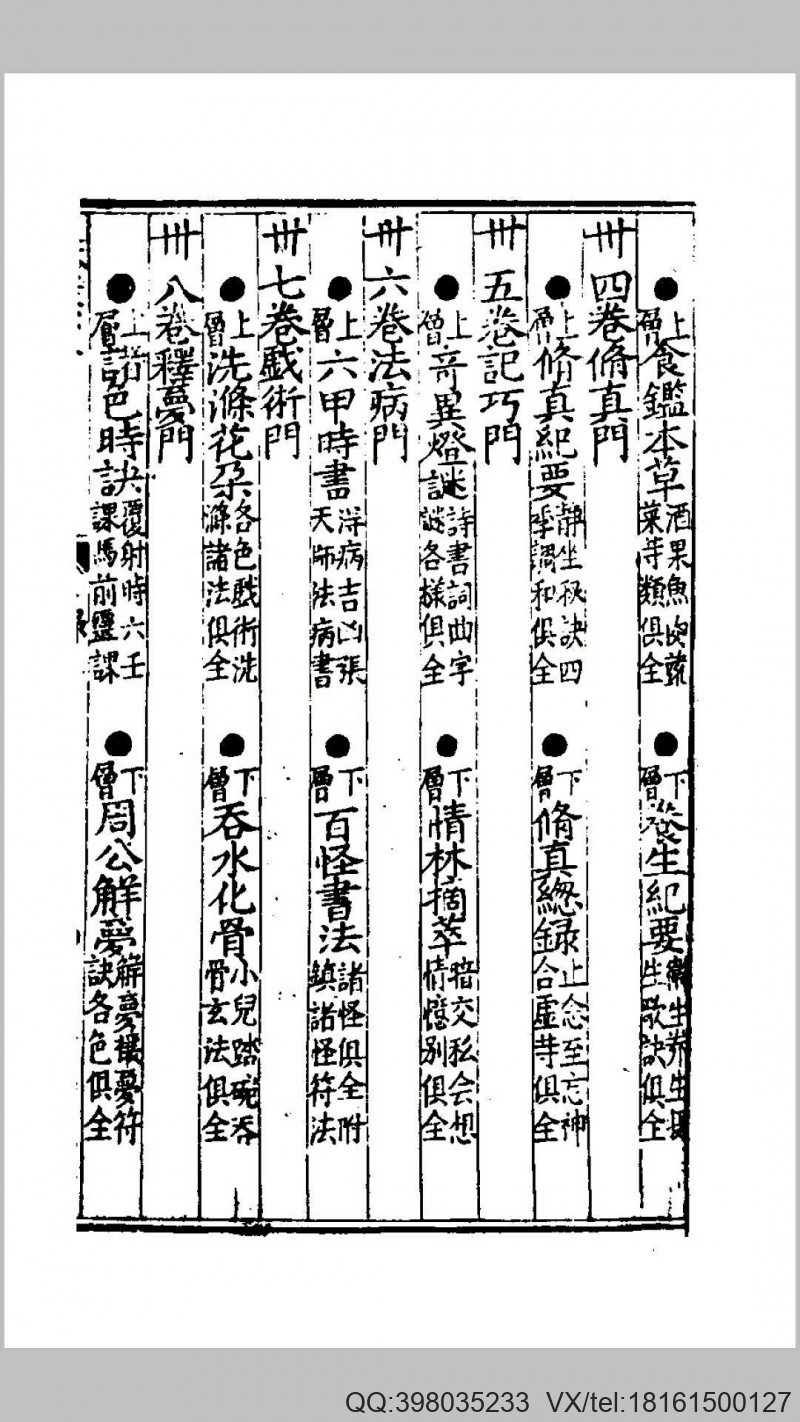 ●上層食鑑本草酒果魚肉蔬菜等類俱全 ●下層養生紀要衛生养生攝生歌訣俱全
卅四卷脩真門
●上層脩真紀要靜坐秘訣四季調和俱全 ●下層脩真總録止念至忘神合虛等俱全
卅五卷記巧門
●上層奇異燈謎詩書詞曲字謎各樣俱全 ●下層情林摘萃暗交私会想情憶别俱全
卅六卷法病門
●上層六甲時書得病吉凶張天師法病書 ●下層百怪書法諸怪俱全附鎮諸怪符法
卅七卷戲術門
●上層洗滌花朶各色戲術洗滌諸法俱全 ●下層吞水化骨小兒踏碗吞骨玄法俱全
卅八卷釋夢門
●上層諸色時訣覆射時六壬課馬前靈課 ●下層周公解夢解夢禳夢符訣各色俱全
QQ:398035233 VX/tel:18161500127